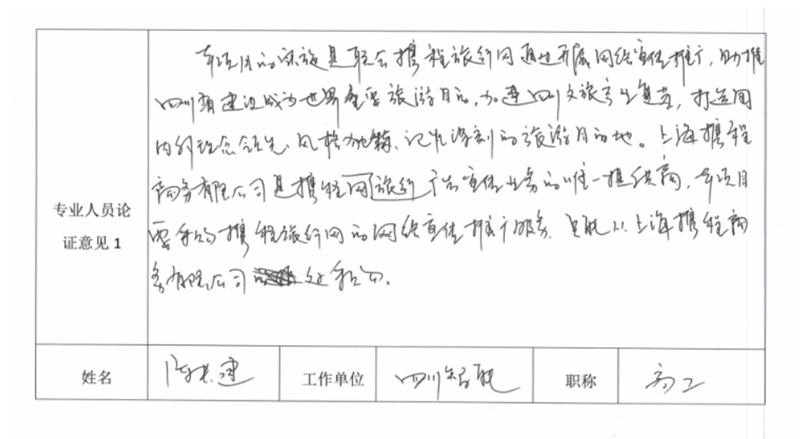 本项目的实施是联合携程旅行网通过开展网络宣传推广，助推
四川省建设成为世界重要旅游目的，加速四川文旅产业复苏，打造国
内外理念领先、风格独特、记忆深刻的旅游目的地。上海携程
商务有限公司是携程网旅行广告宣传业务的唯一提供商，本项目
专业人员论
证意见 1
需采购携程旅行网的网络宣传推广服务，只能从上海携程商
务有限公司处采购。
姓名
工作单位
四川
职称
高工